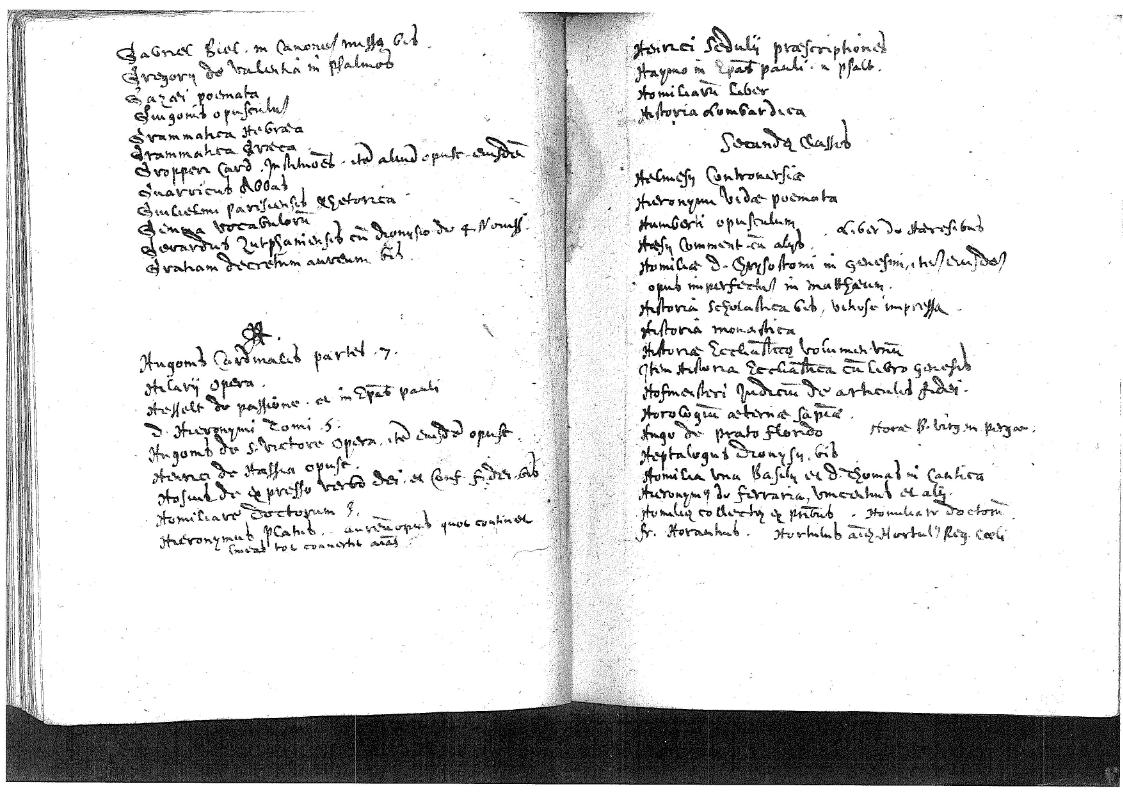 Gabriel Biel in Canonem missę bis
Gregorij de valentia in psalmos
Gazaei poemata
Guigonis opusculum
Grammatica Hebraea
Grammatica Graeca
Gropperi Card. Institutiões. itē aliud opusc. eiusdē
Guarricus Abbas
Guilielmi parisiensis Rhetorica
Gemma vocabulorū
Gerardus Zutphaniensis cū dionysio de 4 Noviss.
Gratiani decretum aureum bis
H.
Hugonis Cardinalis partes 7.
Hilarij opera.
Hesselt de passione. et in Ep̄as pauli
d. Hieronymi Tomi 5.
Hugonis de S. victore opera, itē eiusdē opusc.
Henrici de Hassia opusc.
Hosius de expresso verbo dei. et Conf. fidei. bis
Homiliare Doctorum 3.
Hieronymus Platus. aureū opus quot continet
lineas tot convertit aīas
Heinrici Sedulij praescriptiones
Haymo in Ep̄as pauli. in psalt.
Homiliarū liber
Historia Lombardica
Secundę Classis
Helmesij Controversiae
Hieronymi vidae poemata
Humberti opusculum
Hesij Comment. cū alijs. Liber de Heresibus
Homiliae d. Chrysostomi in genesim, item eiusdem
opus imperfectum in matthaeum.
Historia Scholastica bis, vitiose impressa.
Historia monastica
Historiae Eccliasticę volumen vnū
Item Historia Eccliastica cū libro genesis
Hofmeisteri Judiciū de articulis fidei.
Horologiū aeternae sapīae.
Hugo de prato florido Horae B. virg. in pergam.
Heptalogus Dionysij. bis
Homilia vna Basilij et d. Thomas in Cantica
Hieronymꝰ de ferraria, vincentius et alij.
Homilię collectę ex p̄ribus. Homiliar doctorū.
fr. Horantius. Hortulus aīę. Hortulꝰ Reg. Coeli